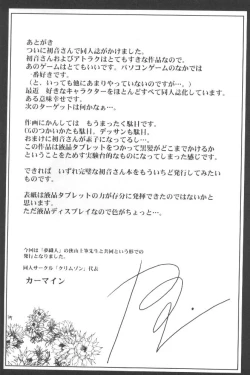 あとがき
ついに初音さんで同人誌がかけました。
初音さんとアトラクはとてもすきな作品なので。
あのゲームはとてもいいです。パソコンゲームのなかでは
一番好きです。
(と、いっても他にあまりやっていないのですが…。)
最近 好きなキャラクターをほとんどすべて同人誌化しています。
ある意味幸せです。
次のターゲットは何かなぁ…。
作画にかんしては もうまったく駄目です。
CGのつかいかたも駄目。デッサンも駄目です。
初音さんおまぎになってるし…。
この作品は液晶タブレットをつかって黒髪がどこまでかけるか
ということをためす実験的なものになってしまった感じです。
できれば いずれ完璧な初音さん本をもういちど発行してみたい
ものです。
表紙は液晶タブレットの力が存分に発揮できたのではないかと
思います。
ただ液晶ディスプレイなので色がちょっと…。
今回は「夢織人」の秋山十筆先生と共同という形での
発行となりました。
同人サークル「クリムゾン」代表
カーマイン